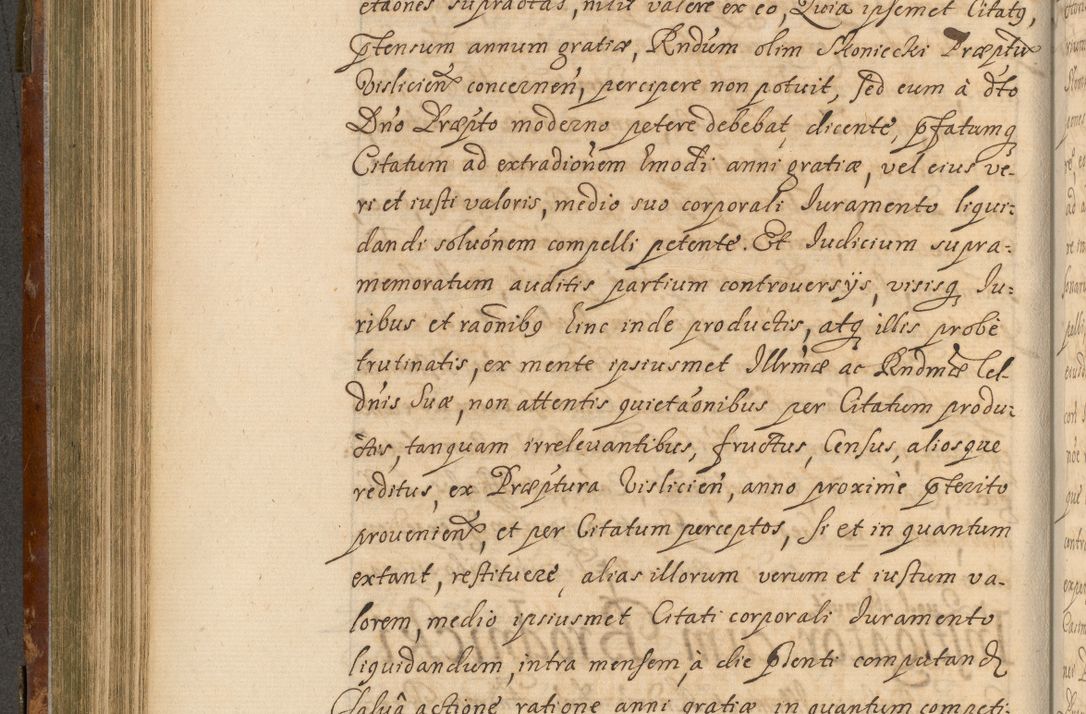 etaones supradtas, nihil valere ex eo, Quia ipsemet Citatq,
ptensum annum gratiæ, Rndum olim Skoniecki Præptu
Vislicien concernen, percipere non potuit, sed eum à dto
Dno Præpto moderno petere debebat, dicente, pfatumq
Citatum ad extradionem hmodi anni gratiæ, vel eius ve-
ri et iusti valoris, medio suo corporali Juramento liqui:
dandi soluonem compelli petente. Et Judicium supra:
memoratum auditis partium controversijs, visisq Ju:
ribus et raonibq hinc inde productis, atq illis probè
trutinatis, ex mente ipsiusmet Illrmæ ac Rndmæ Cel-
dnis Suæ, non attentis quietaonibus per Citatum produ:
ctis, tanquam irreleuantibus, fructus, Census, aliosque
reditus, ex Præptura Vislicien, anno proximè pterito
provenien, et per Citatum perceptos, si et in quantum
extant, restituere, alias illorum verum et iustum va-
lorem, medio ipsiusmet Citati corporali Juramento
liquidandum, intra mensem, à die pñti computand
salua actione ratione anni gratiæ in quantum competi-